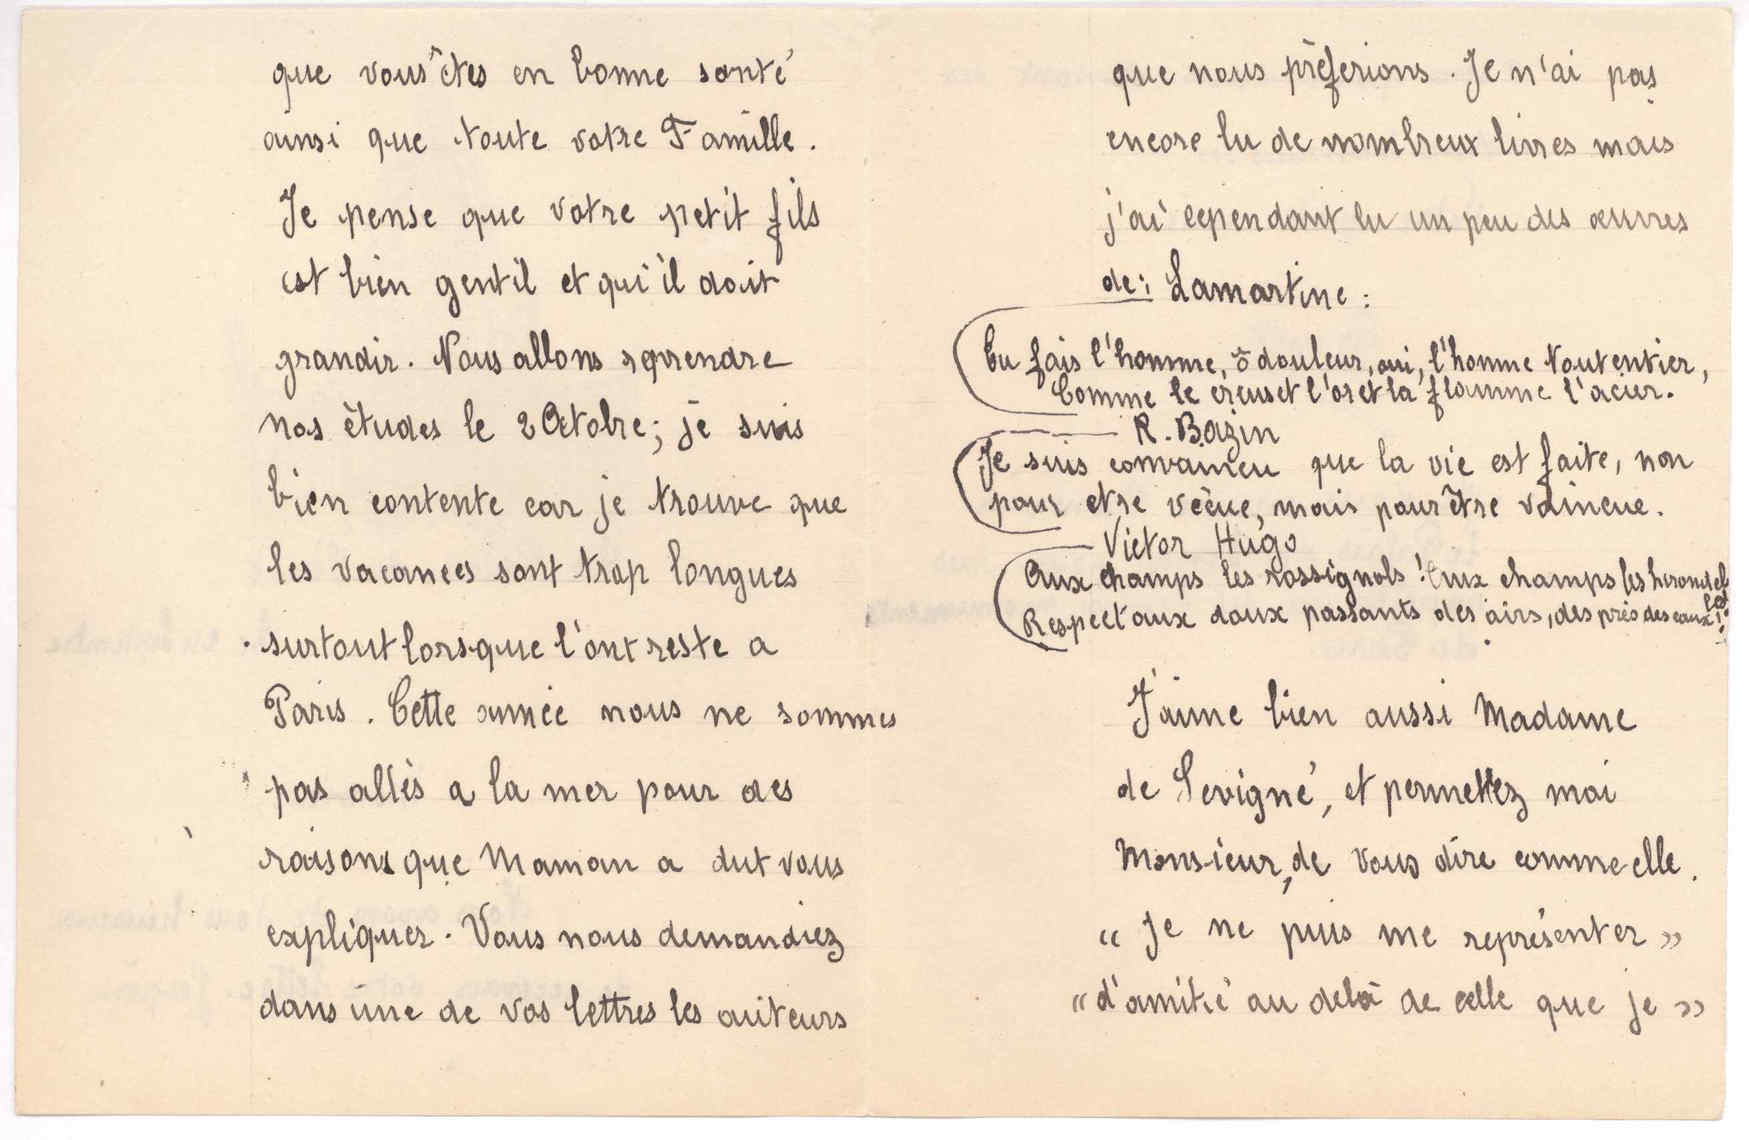 que vous êtes en bonne santé
ainsi que toute votre Famille.
Je pense que votre petit fils
est bien gentil et qui'il doit
grandir. Nous allons reprendre
nos études le 2 Octobre; je suis
bien contente car je trouve que
les vacances sont trop longues
surtout lorsque l'ont reste a
Paris. Cette année nous ne sommes
pas allés a la mer pour des
raisons que Maman a dut vous
expliquer. Vous nous demandiez
dans une de vos lettres les auteurs
que nous préferions. Je n'ai pas
encore lu de nombreux livres mais
j'ai cependant lu un peu des œuvres
de: Lamartine:
Tu fais l'homme, ô douleur, oui, l'homme tout entier,
Comme le creuset l'or et la flamme l'acier.
R. Bazin
Je suis convaincu que la vie est faite, non
pour etre vécue, mais pour être vaincue.
Victor Hugo
Aux champs les rossignols! Aux champs les hirondel
les
Respect aux doux passants des airs, des prés des eaux!
J'aime bien aussi Madame
de Sevigné, et permettez moi
Monsieur, de vous dire comme elle.
« Je ne puis me représenter »
« d'amitié au delà de celle que je »